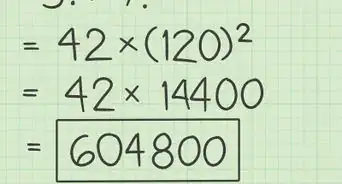 = 42 × (120)²
= 42 × 14400
= 604800